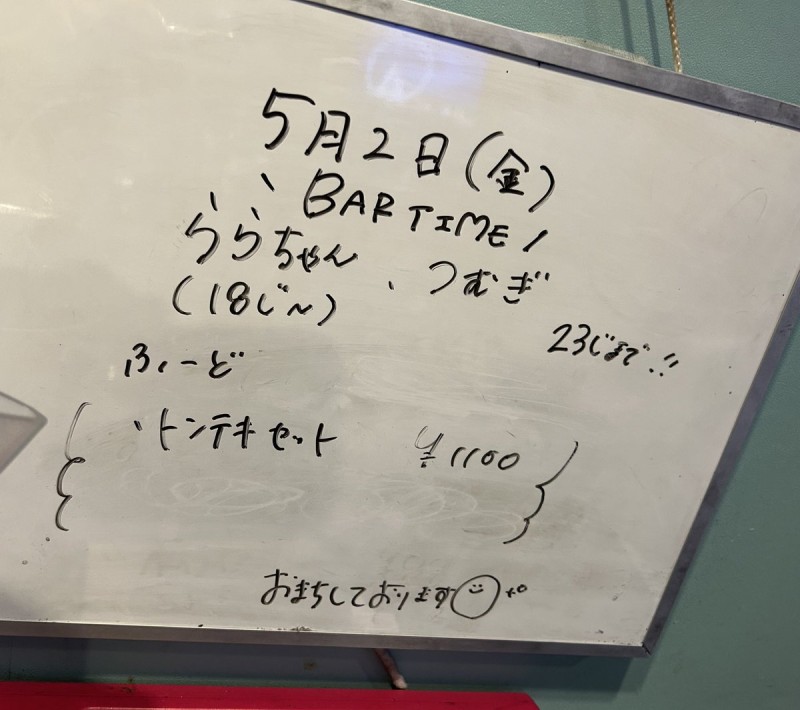 5月2日(金)
BAR TIME!
ららちゃん、つむぎ
(18じ〜)
23じまで!!
ふーど
・トンテキセット ¥1100
おまちしております☺